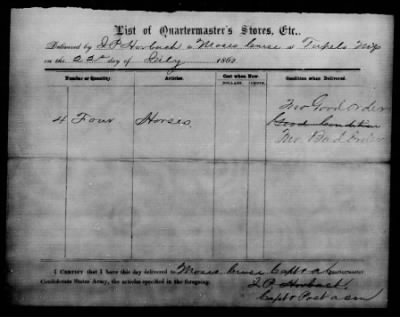 List of Quartermaster's Stores, Etc.,
Delivered by J P Horbach a Moses Cruse a Tupelo Miss
on the 23d day of July 1862
Number or Quantity. Articles. Cost when New Condition when Delivered
DOLLARS. CENTS.
Two Good Order
4 Four Horses. Good Condition
Two Bad Order
I CERTIFY that I have this day delivered to Moses Cruse Capt & a Quartermaster
Confederate States Army, the articles specified in the foregoing.
J P Horbach
Capt & Post a q m